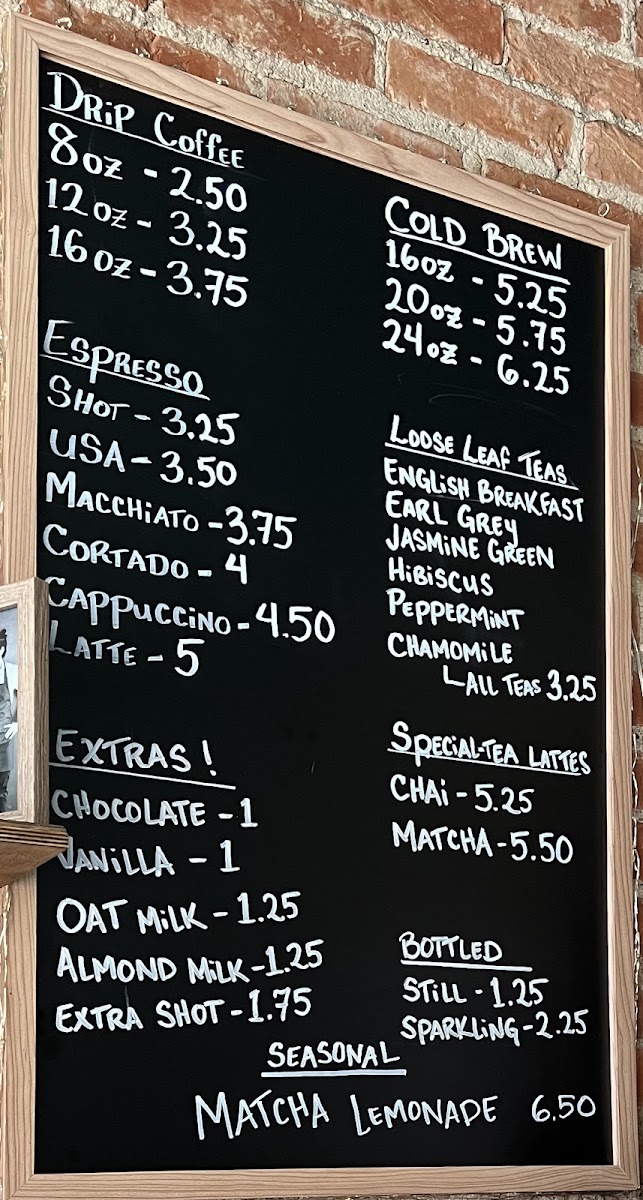 Drip Coffee
8oz - 2.50
12oz - 3.25
16oz - 3.75
Espresso
Shot - 3.25
USA - 3.50
Macchiato - 3.75
Cortado - 4
Cappuccino - 4.50
Latte - 5
EXTRAS!
CHOCOLATE - 1
VANiLLA - 1
OAT MiLK - 1.25
ALMOND MiLK - 1.25
EXTRA SHOT - 1.75
COLD BREW
16oz - 5.25
20oz - 5.75
24oz - 6.25
LOOSE LEAF TEAS
ENGLiSH BREAKFAST
EARL GREY
JASMiNE GREEN
HiBiSCUS
PEPPERMiNT
CHAMOMiLE
ALL TEAS 3.25
SPECiAL-TEA LATTES
CHAi - 5.25
MATCHA - 5.50
BOTTLED
STiLL - 1.25
SPARKLiNG - 2.25
SEASONAL
MATCHA LEMONADE 6.50